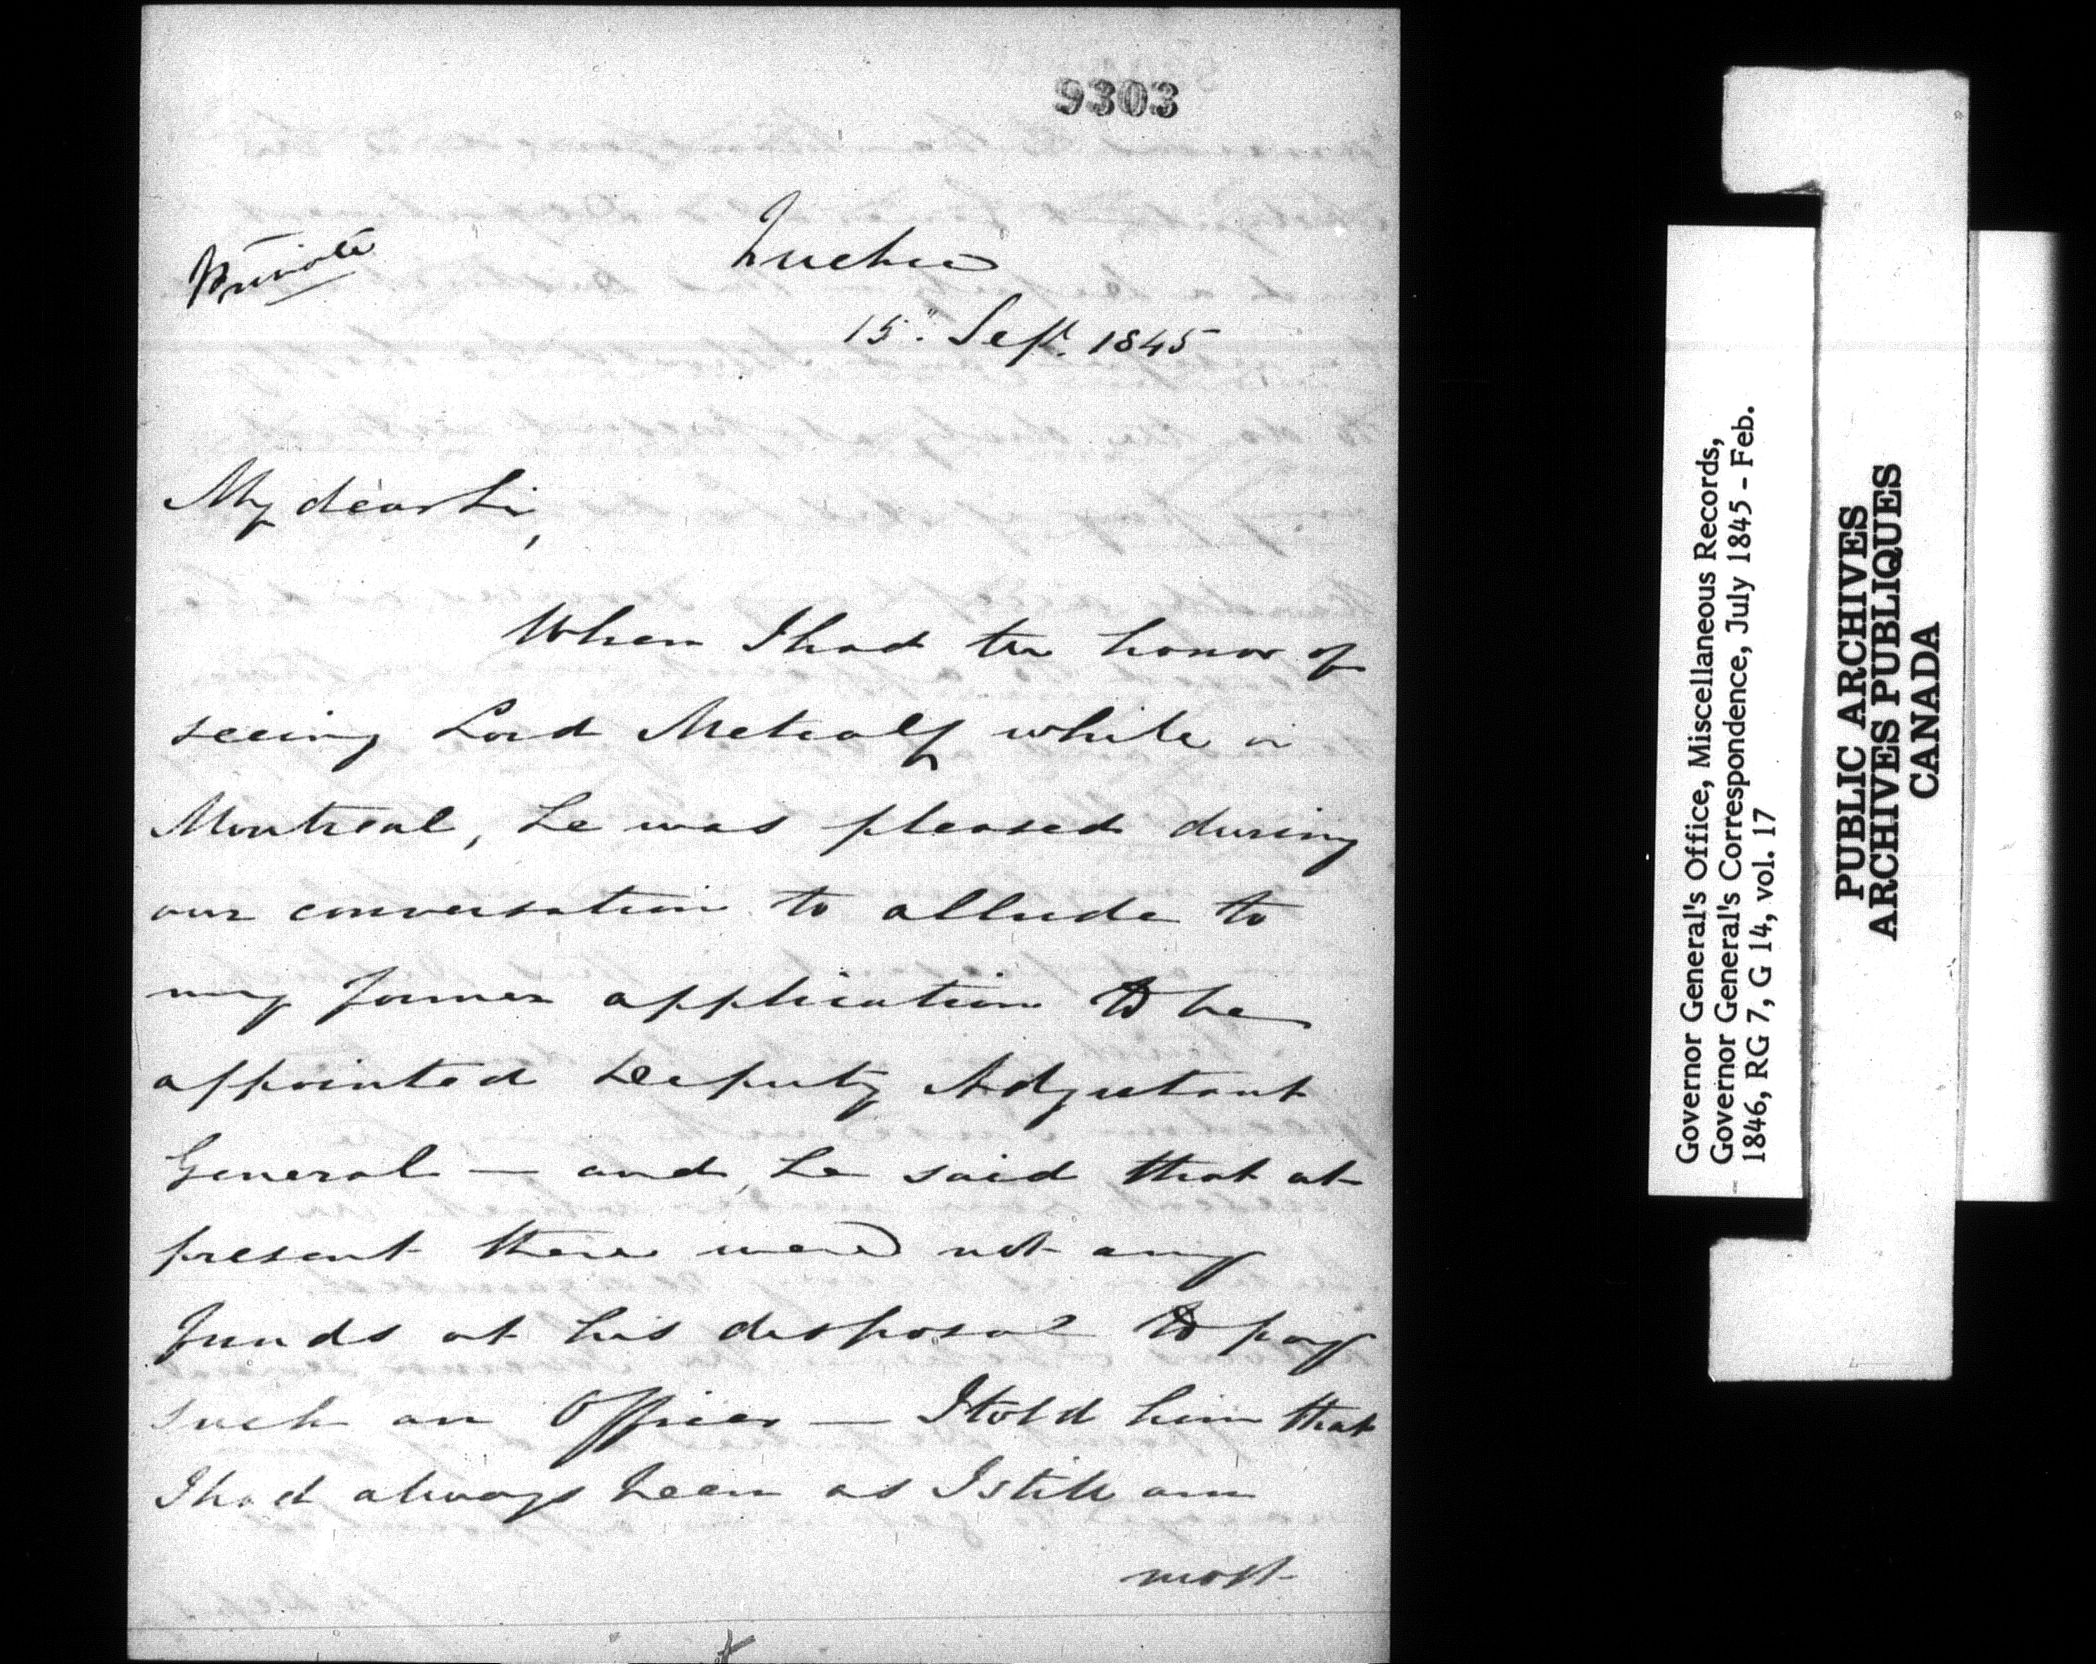 9303
Private
Quebec
15" Sept. 1845
My dear Sir,
When I had the honor of
seeing Lord Metcalf while in
Montreal, he was pleased during
our conversation to allude to
my former application to be
appointed Deputy Adjutant
General — and, he said that at
present there were not any
funds at his disposal to pay
such an Officer — I told him that
I had always been as I still am
most
Governor General's Office, Miscellaneous Records,
Governor General's Correspondence, July 1845 - Feb.
1846, RG 7, G 14, vol. 17
PUBLIC ARCHIVES
ARCHIVES PUBLIQUES
CANADA